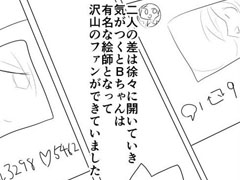 二人の差は徐々に開いていき
気がつくとBちゃんは
有名な絵師となって
沢山のファンができていました…
3298 ♡5412
1 9